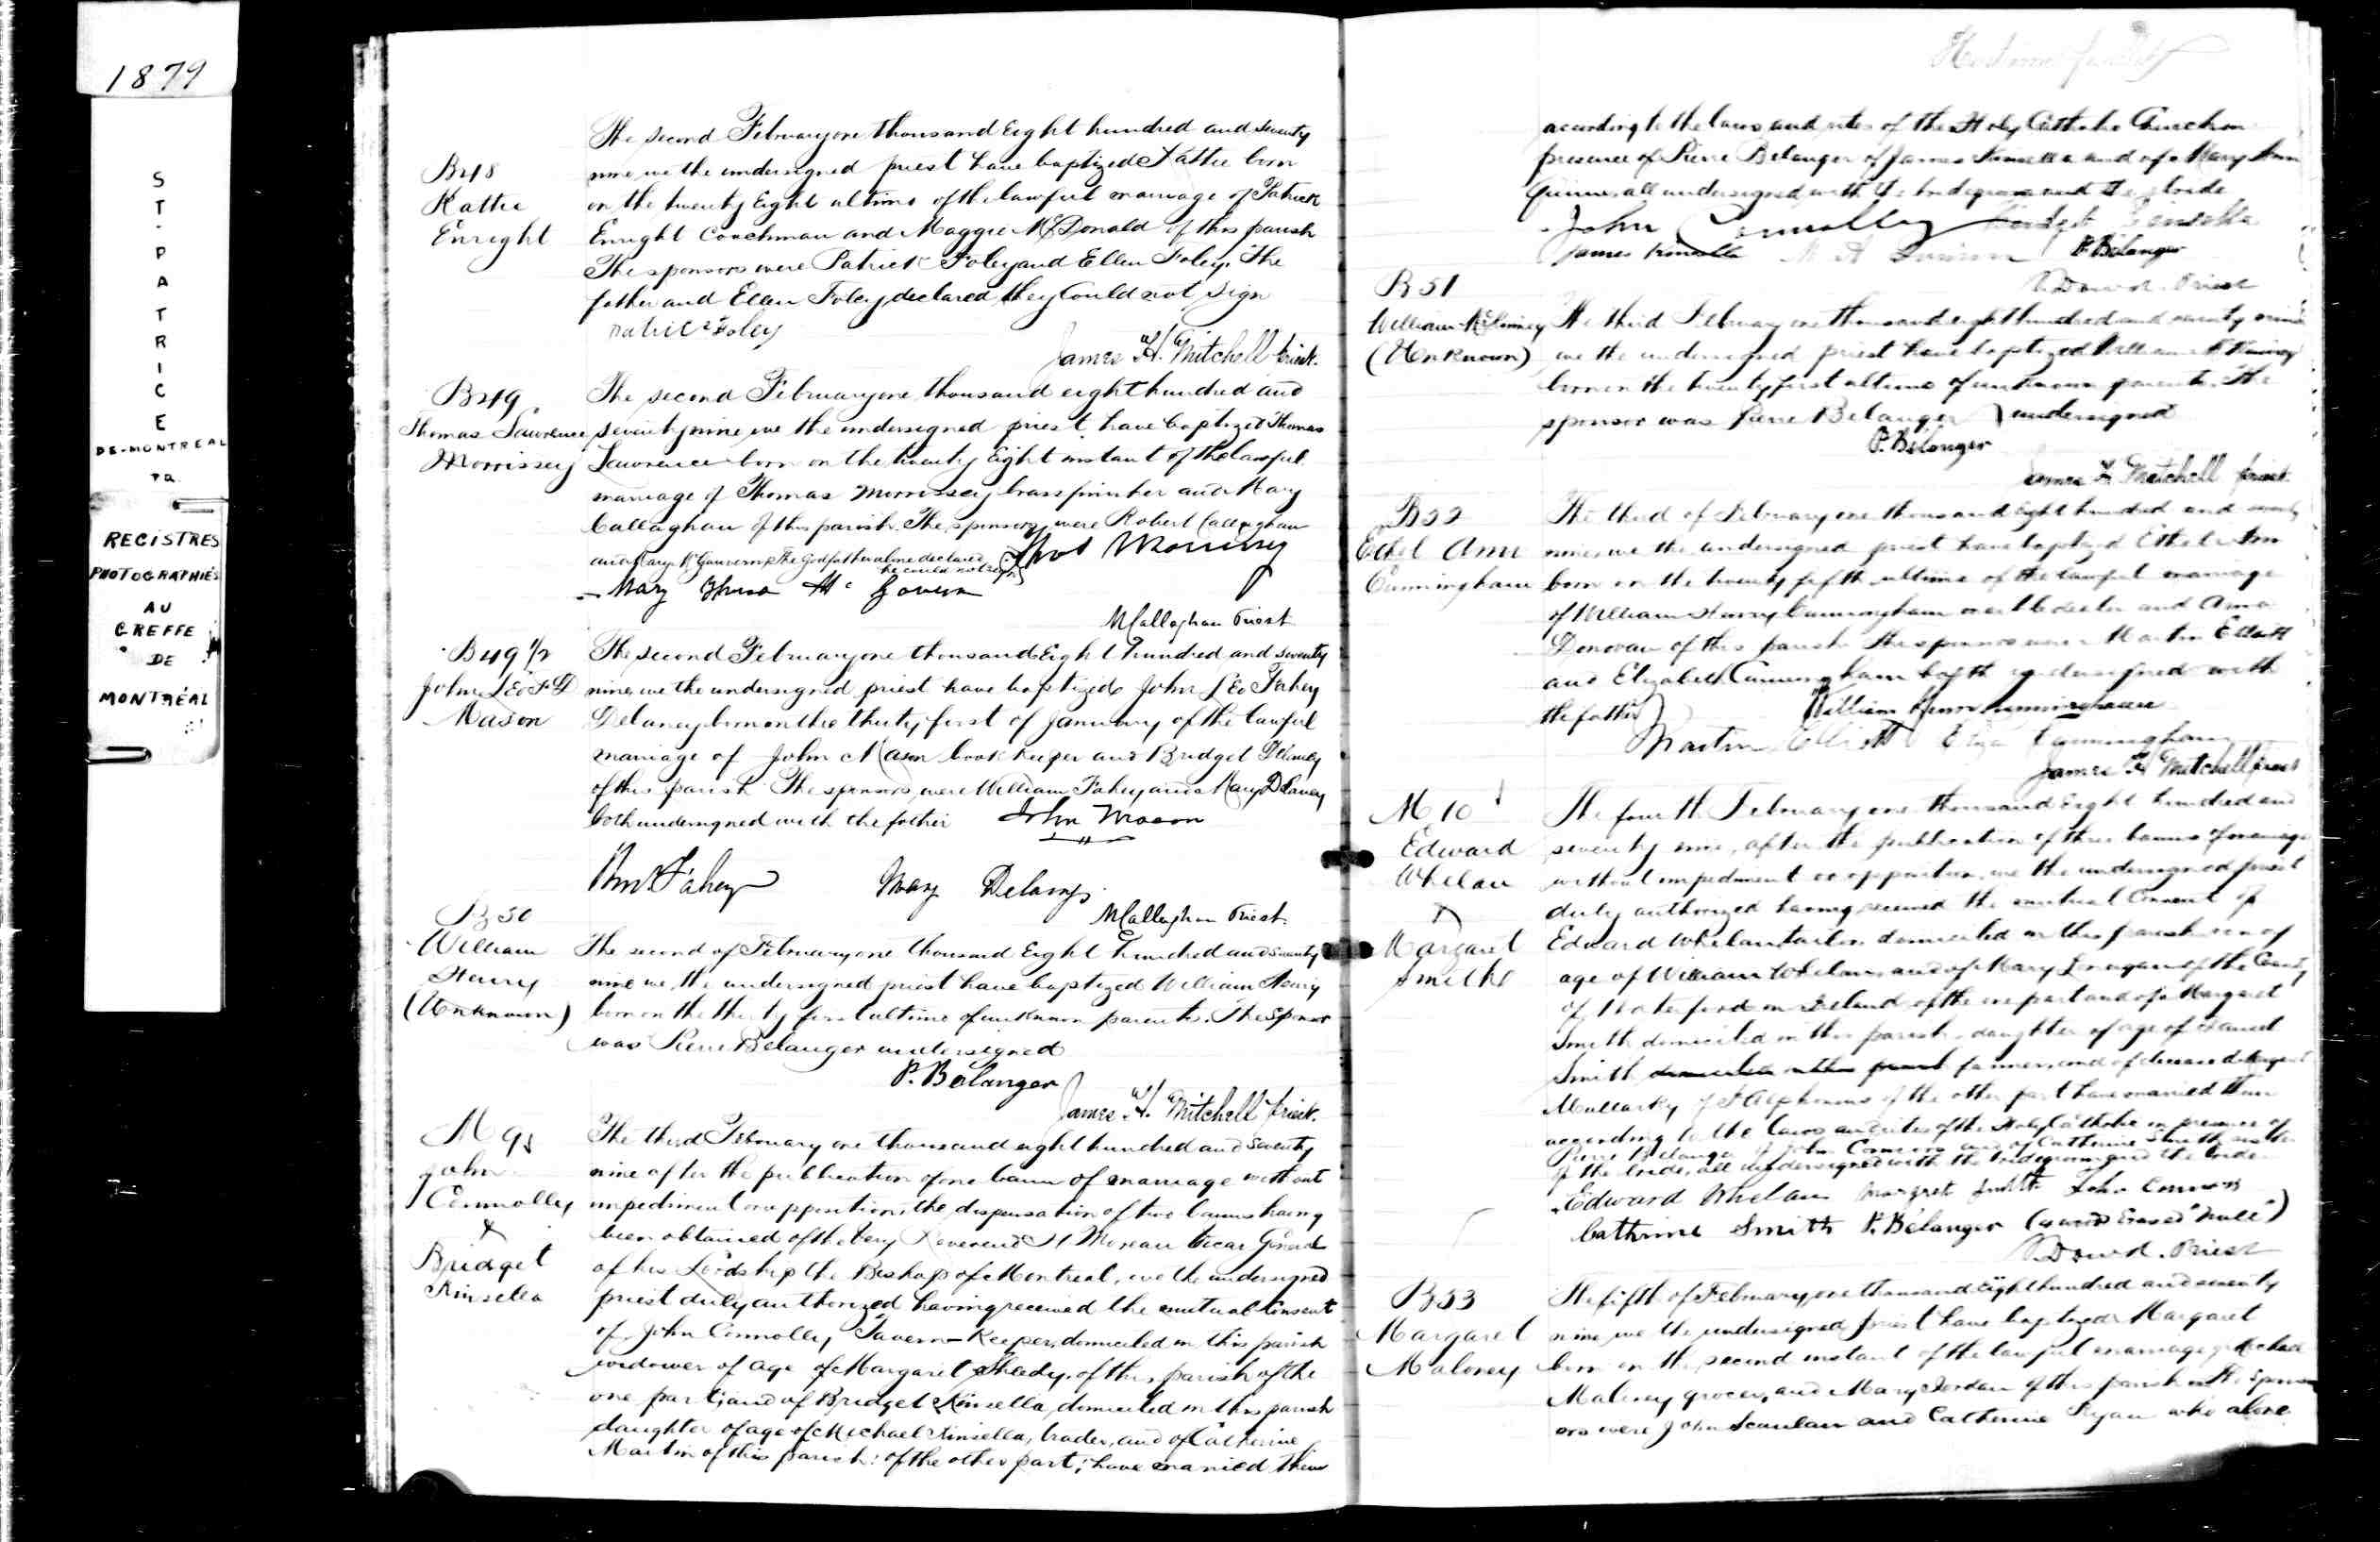 1879
ST. PATRICE
DE-MONTREAL
REGISTRES
PHOTOGRAPHIÉS
AU
GREFFE
DE
MONTRÉAL
The second February one thousand Eight hundred and seventy
B48
nine, we the undersigned priest have baptized Kattie born
Kattie
on the twenty Eight ultimo of the lawful marriage of Patrick
Enright
Enright Coachman and Maggie McDonald of this parish
The sponsors were Patrick Foley and Ellen Foley. The
father and Ellen Foley declared they Could not sign
Patrick Foley
James H. Mitchell priest.
B49
The second February one thousand eight hundred and
Thomas Lawrence
seventy nine we the undersigned priest have baptized Thomas
Morrissey
Lawrence born on the twenty Eight instant of the lawful
marriage of Thomas Morrissey brass finisher and Mary
Callaghan of this parish. The sponsors were Robert Callaghan
and Mary McGovern The Godfather alone declared
he could not sign
Thos Morrissey
Mary McGovern
M Callaghan Priest
B49 1/2
The second February one thousand Eight hundred and seventy
John Leo F D
nine, we the undersigned priest have baptized John Leo Fahey
Mason
Delaney born on the thirty first of January of the lawful
marriage of John Mason book keeper and Bridget Delaney
of this parish The sponsors were William Fahey and Mary Delaney
both undersigned with the father John Mason
Wm Fahey Mary Delaney
M Callaghan Priest.
B50
William
The second of February one thousand Eight hundred and seventy
Henry
nine we the undersigned priest have baptized William Henry
(Unknown)
born on the thirty first ultimo of unknown parents. The sponsor
was Pierre Belanger undersigned
P. Bélanger
James H. Mitchell priest.
M 9
The third February one thousand eight hundred and seventy
John
nine after the publication of one bann of marriage without
Connolly
impediment or opposition, the dispensation of two banns having
&
been obtained of the Very Reverend H Moreau Vicar General
Bridget
of his Lordship the Bishop of Montreal, we the undersigned
Kinsella
priest duly authorized having received the mutual Consent
of John Connolly Tavern-Keeper, domiciled in this parish
widower of age of Margaret Sheedy, of this parish of the
one part; and of Bridget Kinsella, domiciled in this parish
daughter of age of Michael Kinsella, trader, and of Catherine
Martin of this parish: of the other part; have married them
according to the laws and rites of the Holy Catholic Church in
presence of Pierre Belanger of James Kinsella and of Mary Ann
all undersigned with the bridegroom and the bride
John Connolly Bridget Kinsella
James Kinsella P. Bélanger
P. Dowd. Priest
B51
William McKinney
The third February one thousand eight hundred and seventy nine
(Unknown)
we the undersigned priest have baptized William McKinney
born on the twenty first ultimo of unknown parents. The
sponsor was Pierre Belanger undersigned
P. Bélanger
James H. Mitchell priest.
B52
The third of February one thousand Eight hundred and seventy
Ethel Ann
nine, we the undersigned priest have baptized Ethel Ann
Cunningham
born on the twenty fifth ultimo of the lawful marriage
of William Henry Cunningham marble dealer and Anna
Donovan of this parish The sponsors were Martin Elliott
and Elizabeth Cunningham both undersigned with
the father William Henry Cunningham
Martin Elliott Eliza Cunningham
James H Mitchell priest
M 10
The fourth February one thousand Eight hundred and
Edward
seventy nine, after the publication of three banns of marriage
Whelan
without impediment or opposition, we the undersigned priest
&
duly authorized having received the mutual Consent of
Margaret
Edward Whelan tailor domiciled in this parish son of
Smith
age of William Whelan and of Mary Lonagan of the County
of Waterford in Ireland of the one part and of Margaret
Smith domiciled in this parish, daughter of age of Daniel
Smith domiciled in this parish farmer, and of deceased Margaret
Mullarky of St Alphonsus of the other part have married them
according to the laws and rites of the Holy Catholic in presence of
Pierre Belanger of John Connors and of Catherine Smith sister
of the bride, all undersigned with the bridegroom and the bride
Edward Whelan Margret Smith John Connors
Cathrine Smith P. Bélanger (4 words Erased "null")
P. Dowd. Priest
B53
The fifth of February, one thousand Eight hundred and seventy
Margaret
nine, we the undersigned priest have baptized Margaret
Maloney
born on the second instant of the lawful marriage of Michael
Maloney grocer, and Mary Jordan of this parish The spons
ors were John Scanlan and Catherine Ryan who alone